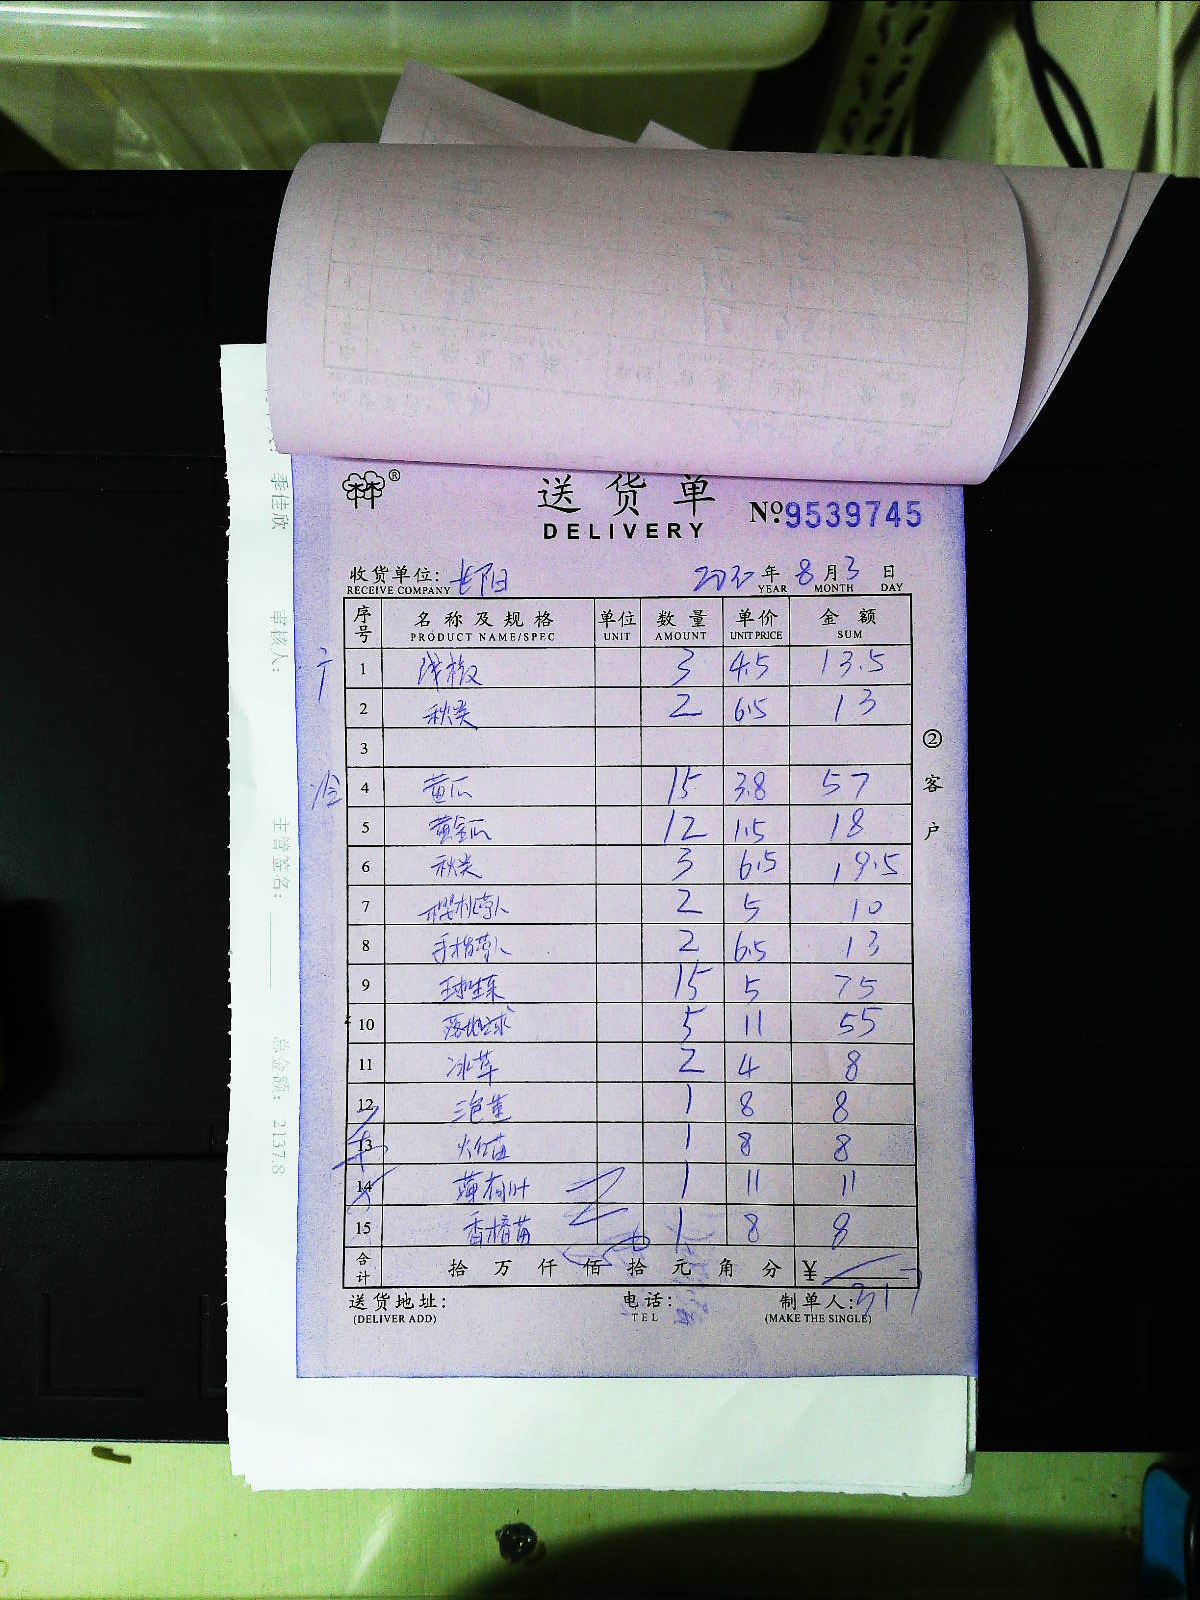 送货单
DELIVERY
№ 9539745
收货单位: 长阳 年 8 月 3 日
RECEIVE COMPANY YEAR MONTH DAY
序号 名称及规格 单位 数量 单价 金额
PRODUCT NAME/SPEC UNIT AMOUNT UNIT PRICE SUM
1 3 4.5 13.5
2 秋葵 2 6.5 13
3
冷 4 黄瓜 15 3.8 57
5 黄金瓜 12 1.5 18
6 秋葵 3 6.5 19.5
7 2 5 10
8 2 6.5 13
9 15 5 75
10 5 11 55
11 冰草 2 4 8
12 1 8 8
13 1 8 8
14 薄荷叶 1 11 11
15 香椿苗 1 8 8
合计 拾 万 仟 佰 拾 元 角 分 ¥ 317
送货地址: 电话: 制单人:
(DELIVER ADD) TEL (MAKE THE SINGLE)
② 客户
季佳欣
审核人:
主管签名:
总金额: 2137.8